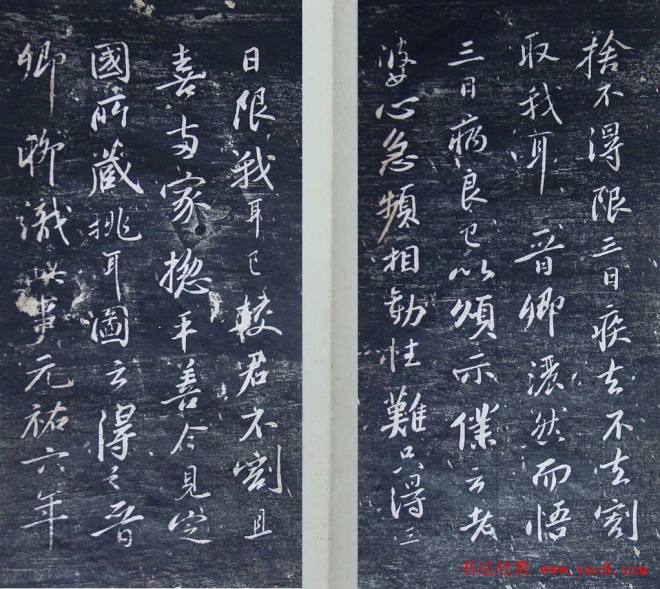 捨不得限三日疾去不去割
取我耳晉卿灑然而悟
三日病良已以頌示僕云老
婆心急頻相勸性難只得三
日限我耳已較君不割且
喜兩家揔平善今見定
國所藏挑耳圖云得之晉
卿聊識此事元祐六年
书法欣赏 www.yac8.com